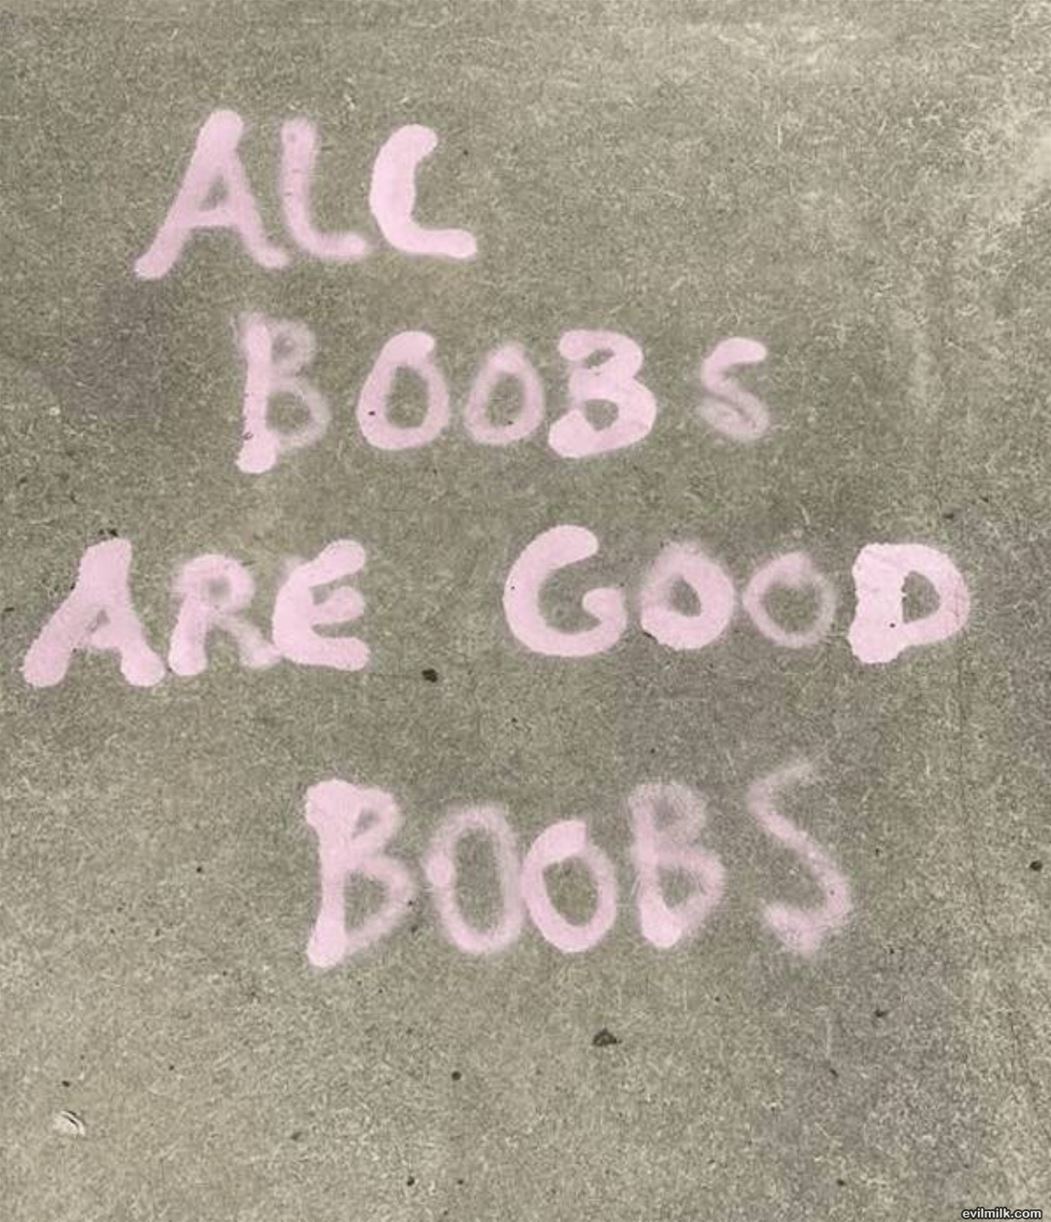 ALL
BOOBS
ARE GOOD
BOOBS
evilmilk.com